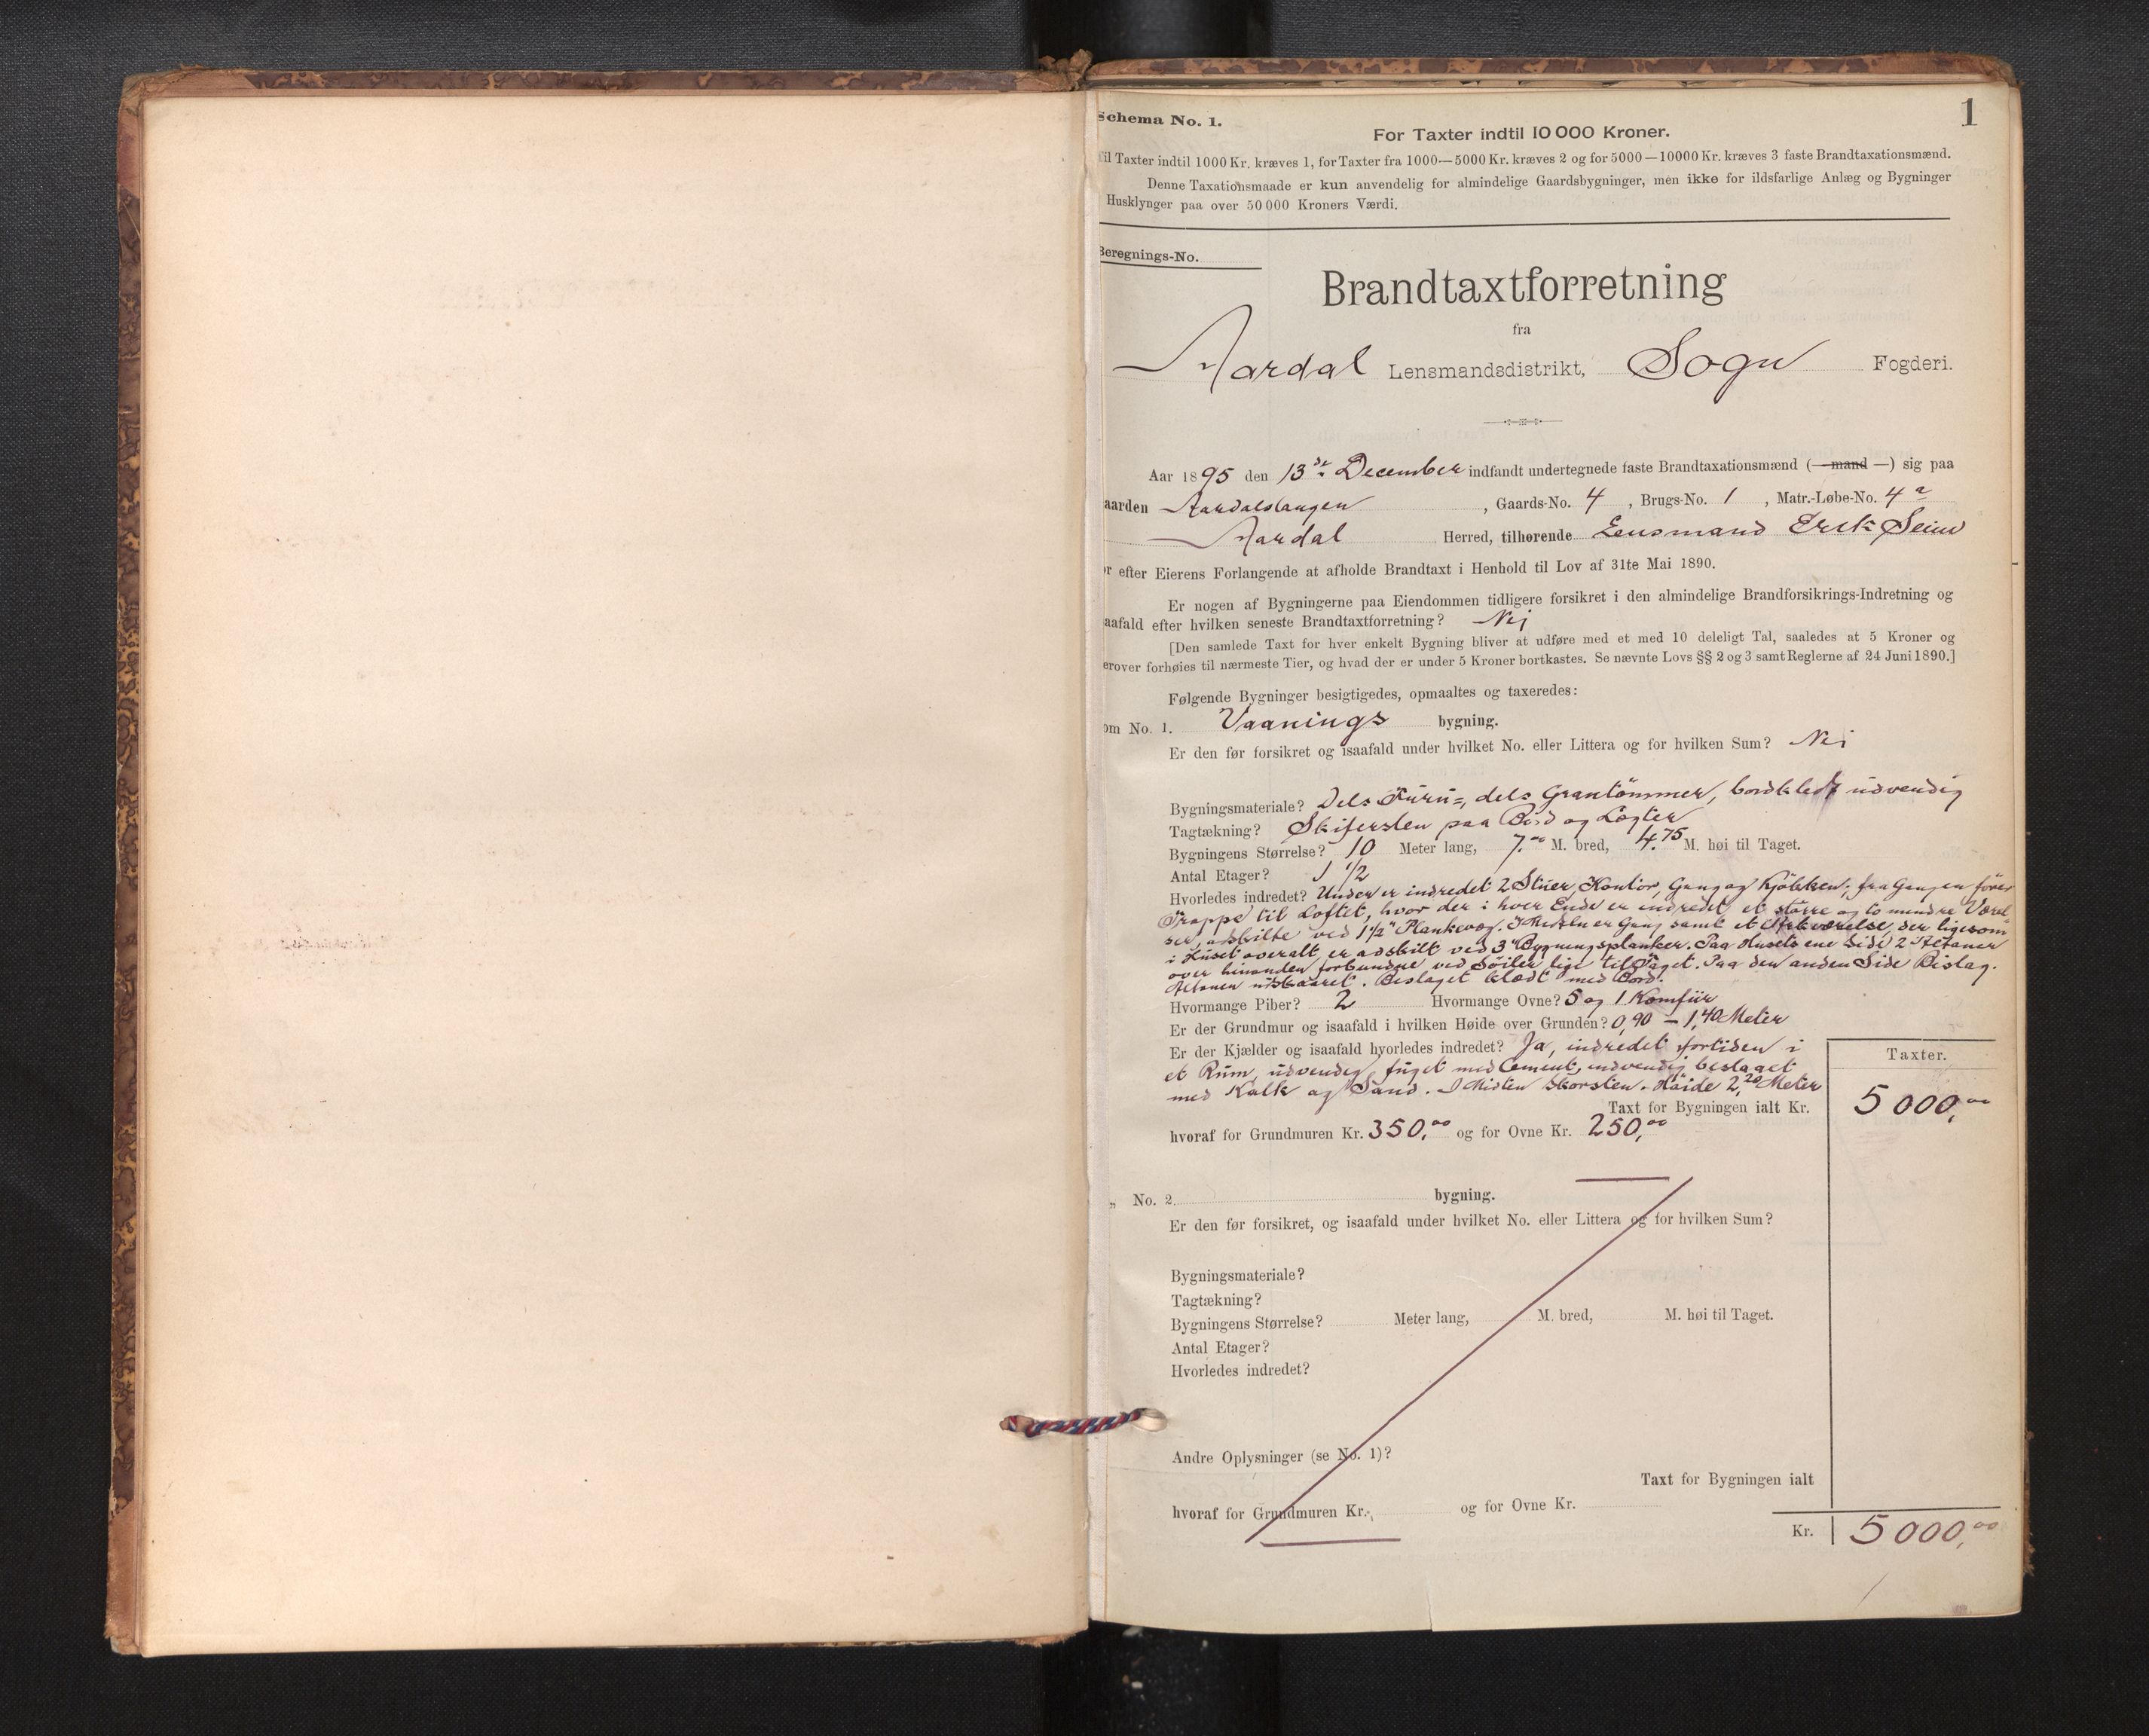 1
Schema No. 1.
For Taxter indtil 10 000 Kroner.
Til Taxter indtil 1000 Kr. kræves 1, for Taxter fra 1000—5000 Kr. kræves 2 og for 5000—10000 Kr. kræves 3 faste Brandtaxationsmænd.
Denne Taxationsmaade er kun anvendelig for almindelige Gaardsbygninger, men ikke for ildsfarlige Anlæg og Bygninger
Husklynger paa over 50 000 Kroners Værdi.
Beregnings-No.
Brandtaxtforretning
fra
Aardal Lensmandsdistrikt, Sogn Fogderi.
Aar 1895 den 13de December indfandt undertegnede faste Brandtaxationsmænd (—mand—) sig paa
aarden Aardalstangen, Gaards-No. 4, Brugs-No. 1, Matr.-Løbe-No. 4a
Aardal Herred, tilhørende Lensmand Erik Seim
r efter Eierens Forlangende at afholde Brandtaxt i Henhold til Lov af 31te Mai 1890.
Er nogen af Bygningerne paa Eiendommen tidligere forsikret i den almindelige Brandforsikrings-Indretning og
aafald efter hvilken seneste Brandtaxtforretning? Nei
[Den samlede Taxt for hver enkelt Bygning bliver at udføre med et med 10 deleligt Tal, saaledes at 5 Kroner og
erover forhøies til nærmeste Tier, og hvad der er under 5 Kroner bortkastes. Se nævnte Lovs §§ 2 og 3 samt Reglerne af 24 Juni 1890.]
Følgende Bygninger besigtigedes, opmaaltes og taxeredes:
om No. 1. Vaanings bygning.
Er den før forsikret og isaafald under hvilket No. eller Littera og for hvilken Sum? Nei
Bygningsmateriale? Dels Furu=, dels Grantömmer, bordklædt udvendig
Tagtækning? Skifersten paa Bord og Lægter
Bygningens Størrelse? 10 Meter lang, 7.00 M. bred, 4.75 M. høi til Taget.
Antal Etager? 1 1/2
Hvorledes indredet? Under er indredet 2 Stuer, Kontor, Gang og Kjökken; fra Gangen förer
Trappe til Loftet, hvor der i hver Ende er indredet et större og to mindre Værel-
ser, adskilte ved 1 1/2" Plankevæg. I Midten er Gang samt et Arkværelse, der ligesom
i Huset overalt er adskilt ved 3" Bygningsplanker. Paa Husets ene Side 2 Altaner
over hinanden forbundne ved Söiler lige til Taget. Paa den anden Side Bislag.
Altanen udskaaret. Bislaget klædt med Bord.
Hvormange Piber? 2 Hvormange Ovne? 5 og 1 Komfür
Er der Grundmur og isaafald i hvilken Høide over Grunden? 0,90 — 1,40 Meter
Er der Kjælder og isaafald hvorledes indredet? Ja, indredet fortiden i
et Rum, udvendig füget med Cement, indvendig beslaget
med Kalk og Sand. I Midten Skorsten. Höide 2,20 Meter
Taxter.
Taxt for Bygningen ialt Kr. 5000,00
hvoraf for Grundmuren Kr. 350,00 og for Ovne Kr. 250,00
„ No. 2 bygning.
Er den før forsikret, og isaafald under hvilket No. eller Littera og for hvilken Sum?
Bygningsmateriale?
Tagtækning?
Bygningens Størrelse? Meter lang, M. bred, M. høi til Taget.
Antal Etager?
Hvorledes indredet?
Andre Oplysninger (se No. 1)?
Taxt for Bygningen ialt
hvoraf for Grundmuren Kr. og for Ovne Kr.
Kr. 5000,00